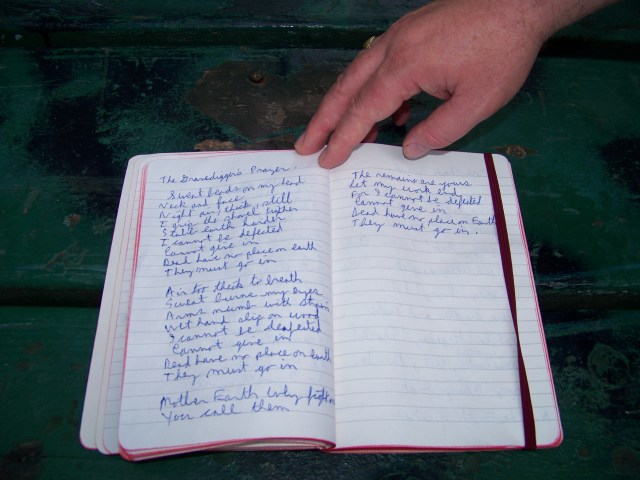 The Gravedigger's Prayer.
Sweat beads on my head
Neck and face
Night air, thick, still
I grip the shovel tighter
Stab earth harder
I cannot be defeted
Cannot give in
Dead have no place on earth
They must go in
Air too thick to breath
Sweat burns my eyes
Arms numb with strain
Wet hand slip on wood
I cannot be deafeted
Cannot give in
Dead have no place on Earth
They must go in
Mother Earth Why fight me
You call them
The remains are yours
Let my work end
For I cannot be defeted
Cannot give in
Dead have no place on Earth
They must go in.